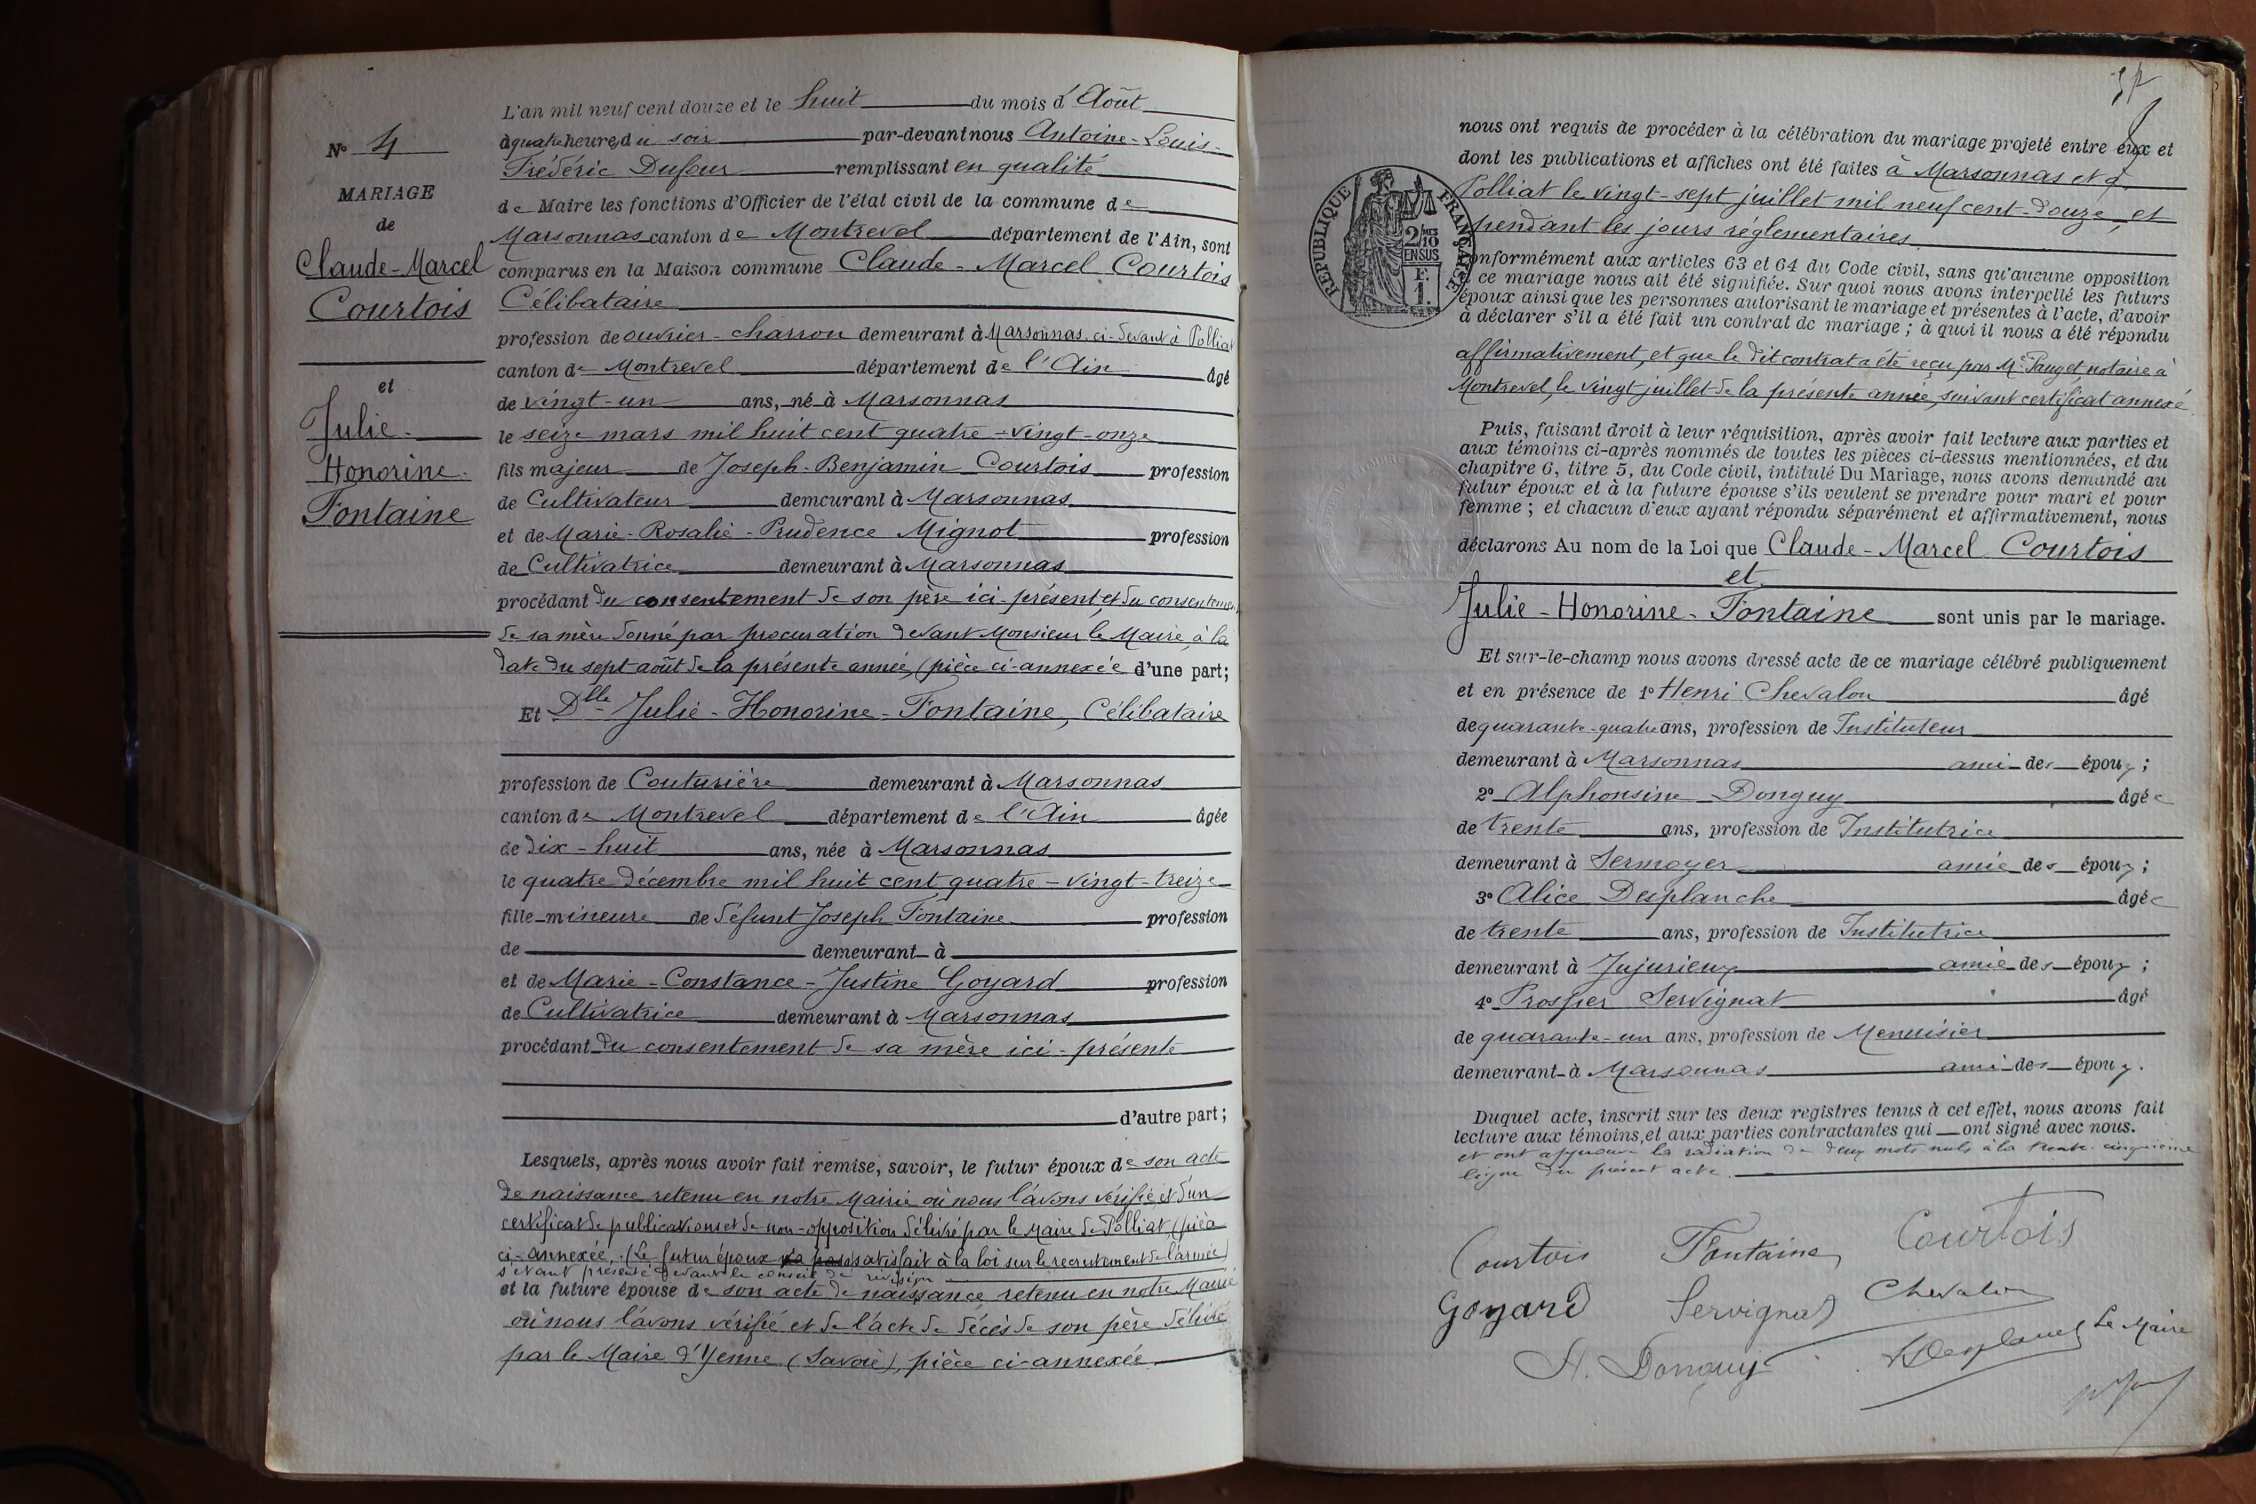 N° 4
MARIAGE
de
Claude-Marcel
Courtois
et
Julie-
Honorine-
Fontaine
L'an mil neuf cent douze et le huit du mois d'Août
à quatre heures du soir par-devant nous Antoine-Louis-
Frédéric Dufour remplissant en qualité
de Maire les fonctions d'Officier de l'état civil de la commune de
Marsonnas canton de Montrevel département de l'Ain, sont
comparus en la Maison commune Claude-Marcel Courtois
Célibataire
profession de ouvrier-charron demeurant à Marsonnas ci-devant à Polliat
canton de Montrevel département de l'Ain âgé
de vingt-un ans, né à Marsonnas
le seize mars mil huit cent quatre-vingt-onze
fils majeur de Joseph-Benjamin Courtois profession
de Cultivateur demeurant à Marsonnas
et de Marie-Rosalie-Prudence Mignot profession
de Cultivatrice demeurant à Marsonnas
procédant du consentement de son père ici-présent et du consentement
de sa mère donné par procuration devant Monsieur le Maire, à la
date du sept août de la présente année, (pièce ci-annexée d'une part;
Et Dlle Julie-Honorine-Fontaine, Célibataire
profession de Couturière demeurant à Marsonnas
canton de Montrevel département de l'Ain âgée
de dix-huit ans, née à Marsonnas
le quatre décembre mil huit cent quatre-vingt-treize
fille mineure de défunt Joseph Fontaine profession
de demeurant à
et de Marie-Constance-Justine Goyard profession
de Cultivatrice demeurant à Marsonnas
procédant du consentement de sa mère ici-présente
d'autre part;
Lesquels, après nous avoir fait remise, savoir, le futur époux de son acte
de naissance retenu en notre Mairie où nous l'avons vérifié et d'un
certificat de publications et de non-opposition délivré par le Maire de Polliat, (pièce
ci-annexée. (Le futur époux n'a pas satisfait à la loi sur le recrutement de l'armée)
s'étant présenté devant le conseil de revision
et la future épouse de son acte de naissance retenu en notre Mairie
où nous l'avons vérifié et de l'acte de décès de son père délivré
par le Maire d'Yenne (Savoie), pièce ci-annexée.
37
nous ont requis de procéder à la célébration du mariage projeté entre eux et
dont les publications et affiches ont été faites à Marsonnas et à
Polliat le vingt-sept juillet mil neuf cent-douze, et
pendant les jours réglementaires.
REPUBLIQUE FRANÇAISE
2/10 EN SUS
F. 1.
conformément aux articles 63 et 64 du Code civil, sans qu'aucune opposition
à ce mariage nous ait été signifiée. Sur quoi nous avons interpellé les futurs
époux ainsi que les personnes autorisant le mariage et présentes à l'acte, d'avoir
à déclarer s'il a été fait un contrat de mariage ; à quoi il nous a été répondu
affirmativement, et que le dit contrat a été reçu par Me Pauget notaire à
Montrevel, le vingt juillet de la présente année, suivant certificat annexé
Puis, faisant droit à leur réquisition, après avoir fait lecture aux parties et
aux témoins ci-après nommés de toutes les pièces ci-dessus mentionnées, et du
chapitre 6, titre 5, du Code civil, intitulé Du Mariage, nous avons demandé au
futur époux et à la future épouse s'ils veulent se prendre pour mari et pour
femme ; et chacun d'eux ayant répondu séparément et affirmativement, nous
déclarons Au nom de la Loi que Claude-Marcel Courtois
et
Julie-Honorine-Fontaine sont unis par le mariage.
Et sur-le-champ nous avons dressé acte de ce mariage célébré publiquement
et en présence de 1° Henri Chevalon âgé
de quarante-quatre ans, profession de Instituteur
demeurant à Marsonnas ami des époux ;
2° Alphonsine Donguy âgée
de trente ans, profession de Institutrice
demeurant à Sermoyer amie des époux ;
3° Alice Desplanche âgée
de trente ans, profession de Institutrice
demeurant à Jujurieux amie des époux ;
4° Prosper Servignat âgé
de quarante-un ans, profession de Menuisier
demeurant à Marsonnas ami des époux.
Duquel acte, inscrit sur les deux registres tenus à cet effet, nous avons fait
lecture aux témoins, et aux parties contractantes qui ont signé avec nous.
et ont approuvé la radiation de deux mots nuls à la trente-cinquième
ligne du présent acte.
Courtois Fontaine Courtois
Goyard Servignat Chevalon
A. Donguy Desplanche Le Maire